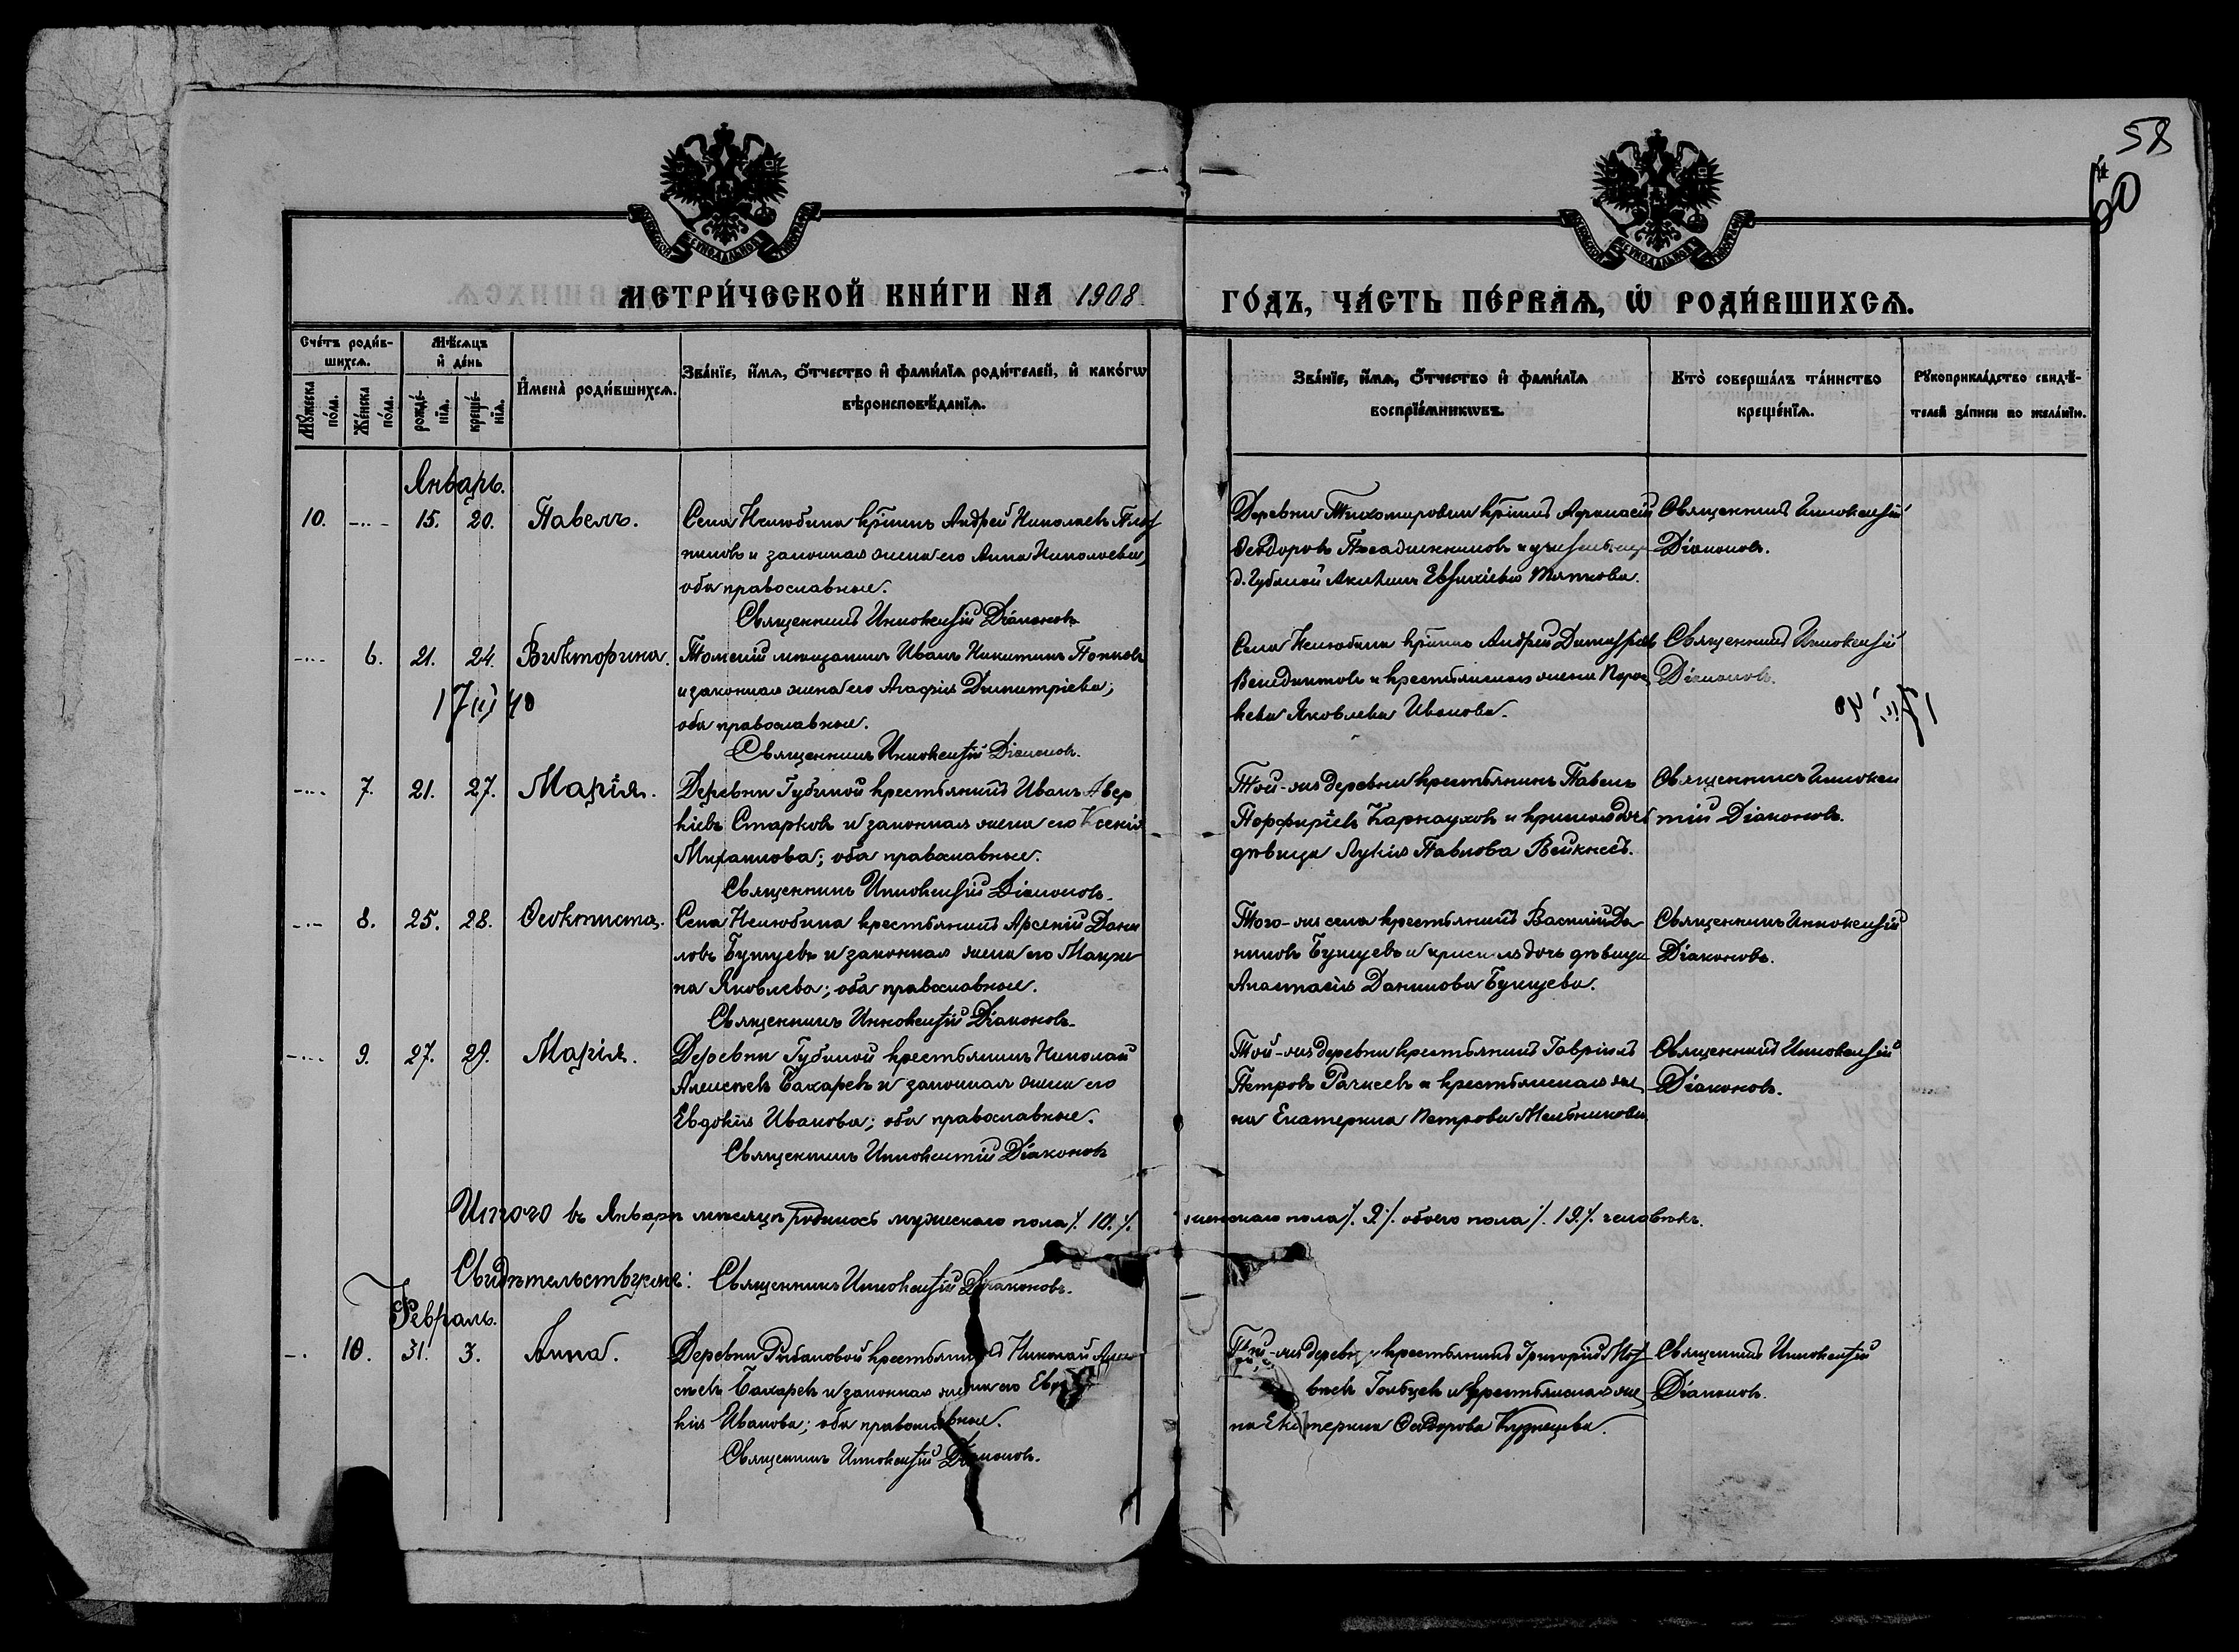 58
60
МЕТРИ́ЧЕСКОЙ КНИ́ГИ НА 1908
ГО́ДЪ, ЧА́СТЬ ПЕ́РВАѦ, Ѡ҆ РОДИ́ВШИХСѦ.
Сче́тъ роди́в-
шихсѧ.
Мѣ́сѧцъ
и҆ де́нь
Мꙋ́жеска по́ла.
Же́нска по́ла.
рожде́-нїѧ.
креще́-нїѧ.
И҆мена̀ роди́вшихсѧ.
Зва́нїе, и҆́мѧ, ѻ҆́тчество и҆ фами́лїѧ роди́телей, и҆ како́гѡ
вѣроисповѣ́данїѧ.
Зва́нїе, и҆́мѧ, ѻ҆́тчество и҆ фами́лїѧ
воспрїе́мникѡвъ.
Кто̀ соверша́лъ та́инство
креще́нїѧ.
Рꙋкоприкла́дство свидѣ́-
телей за́писи по жела́нїю.
Январь.
10. 15. 20. Павелъ.
Села Нелюбина кр҃нинъ Андрей Николаевъ
и законная жена его Анна Николаева,
оба православные.
Священникъ Иннокентій Діаконовъ
Деревни Тихомировки кр҃нинъ Афанасій
Ѳеодоровъ и
д. Губиной Евтихіева
Священникъ Иннокентій
Діаконовъ.
6. 21. 24. Викторина.
17 (1) 40
Томскій мѣщанинъ Иванъ Никитинъ Поповъ
и законная жена его Агафія Димитріева;
оба православные.
Священникъ Иннокентій Діаконовъ.
Села Нелюбина Андрей Димитріевъ
Венедиктовъ и крестьянская жена Парас
кева Яковлева Иванова.
Священникъ Иннокентій
Діаконовъ.
7. 21. 27. Марія.
Деревни Губиной крестьянинъ Иванъ Авер
кіевъ Старковъ и законная жена его Ксенія
Михаилова; оба православные.
Священникъ Иннокентій Діаконовъ.
Той-же деревни крестьянинъ Павелъ
Порфиріевъ Карнауховъ и
дѣвица Лукія Павлова
Священникъ Иннокен
тій Діаконовъ.
8. 25. 28. Ѳеоктиста.
Села Нелюбина крестьянинъ Арсеній Дани
ловъ Бушуевъ и законная жена его Макри
на Яковлева; оба православные.
Священникъ Иннокентій Діаконовъ.
Того-же села крестьянинъ Василій Да
ниловъ Бушуевъ и дочь дѣвица
Анастасія Данилова Бушуева.
Священникъ Иннокентій
Діаконовъ.
9. 27. 29. Марія.
Деревни Губиной крестьянинъ Николай
Алексѣевъ Бахаревъ и законная жена его
Евдокія Иванова; оба православные.
Священникъ Иннокентій Діаконовъ
Той-же деревни крестьянинъ Гавріилъ
Петровъ и крестьянская же
на Екатерина Петрова Мельникова
Священникъ Иннокентій
Діаконовъ.
Итого въ Январѣ мѣсяцѣ родилось мужескаго пола ⁒ 10. ⁒ женскаго пола ⁒ 9 ⁒ обоего пола ⁒ 19 ⁒ человѣкъ.
Свидѣтельствуемъ: Священникъ Иннокентій Діаконовъ.
Февраль.
10. 31. 3. Анна.
Деревни Рыбаловой крестьянинъ Николай Алек
сѣевъ Бахаревъ и законная жена его Евдо
кія Иванова; оба православные.
Священникъ Иннокентій Діаконовъ.
Той-же деревни крестьянинъ Григорій
Голбцевъ и крестьянская же
на Екатерина Ѳеодорова Кузнецова.
Священникъ Иннокентій
Діаконовъ.